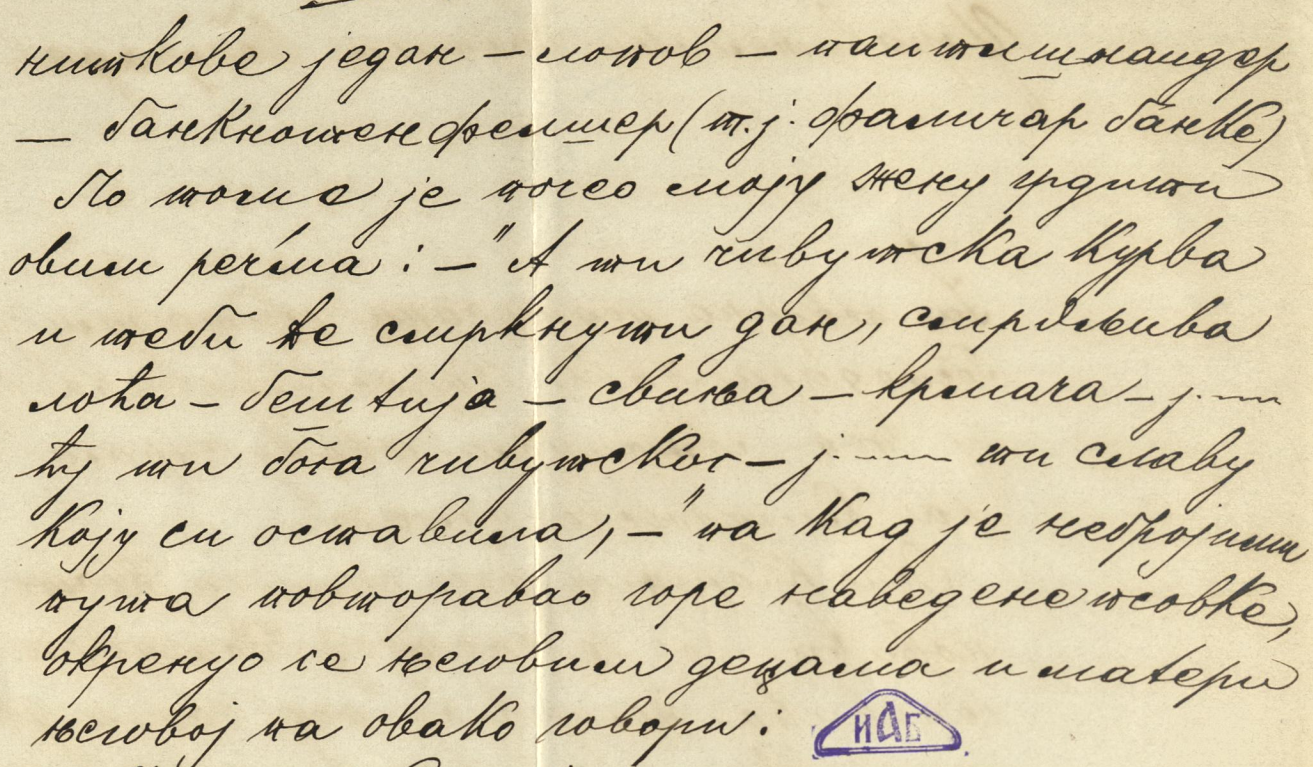 ниткове један – лопов – паптишлаидер
– банкнотенфелшер (т.ј. фаличар банке)
По томе је почео моју жену грдити
овим речма : – "А ти чивутска курва
и теби ће смркнути дан, смрдљива
лоћа – бештија – свиња – крмача – ј.---
ћу ти бога чивутског – ј.---- ти славу
коју си оставила, – " па кад је небројими
пута повторавао горе наведене псовке,
окренуо се његовим децама и матери
његовој па овако говори :
ИАБ